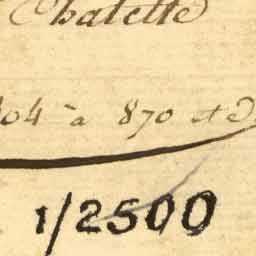 Chalette
404 à 870 et d
1/2500